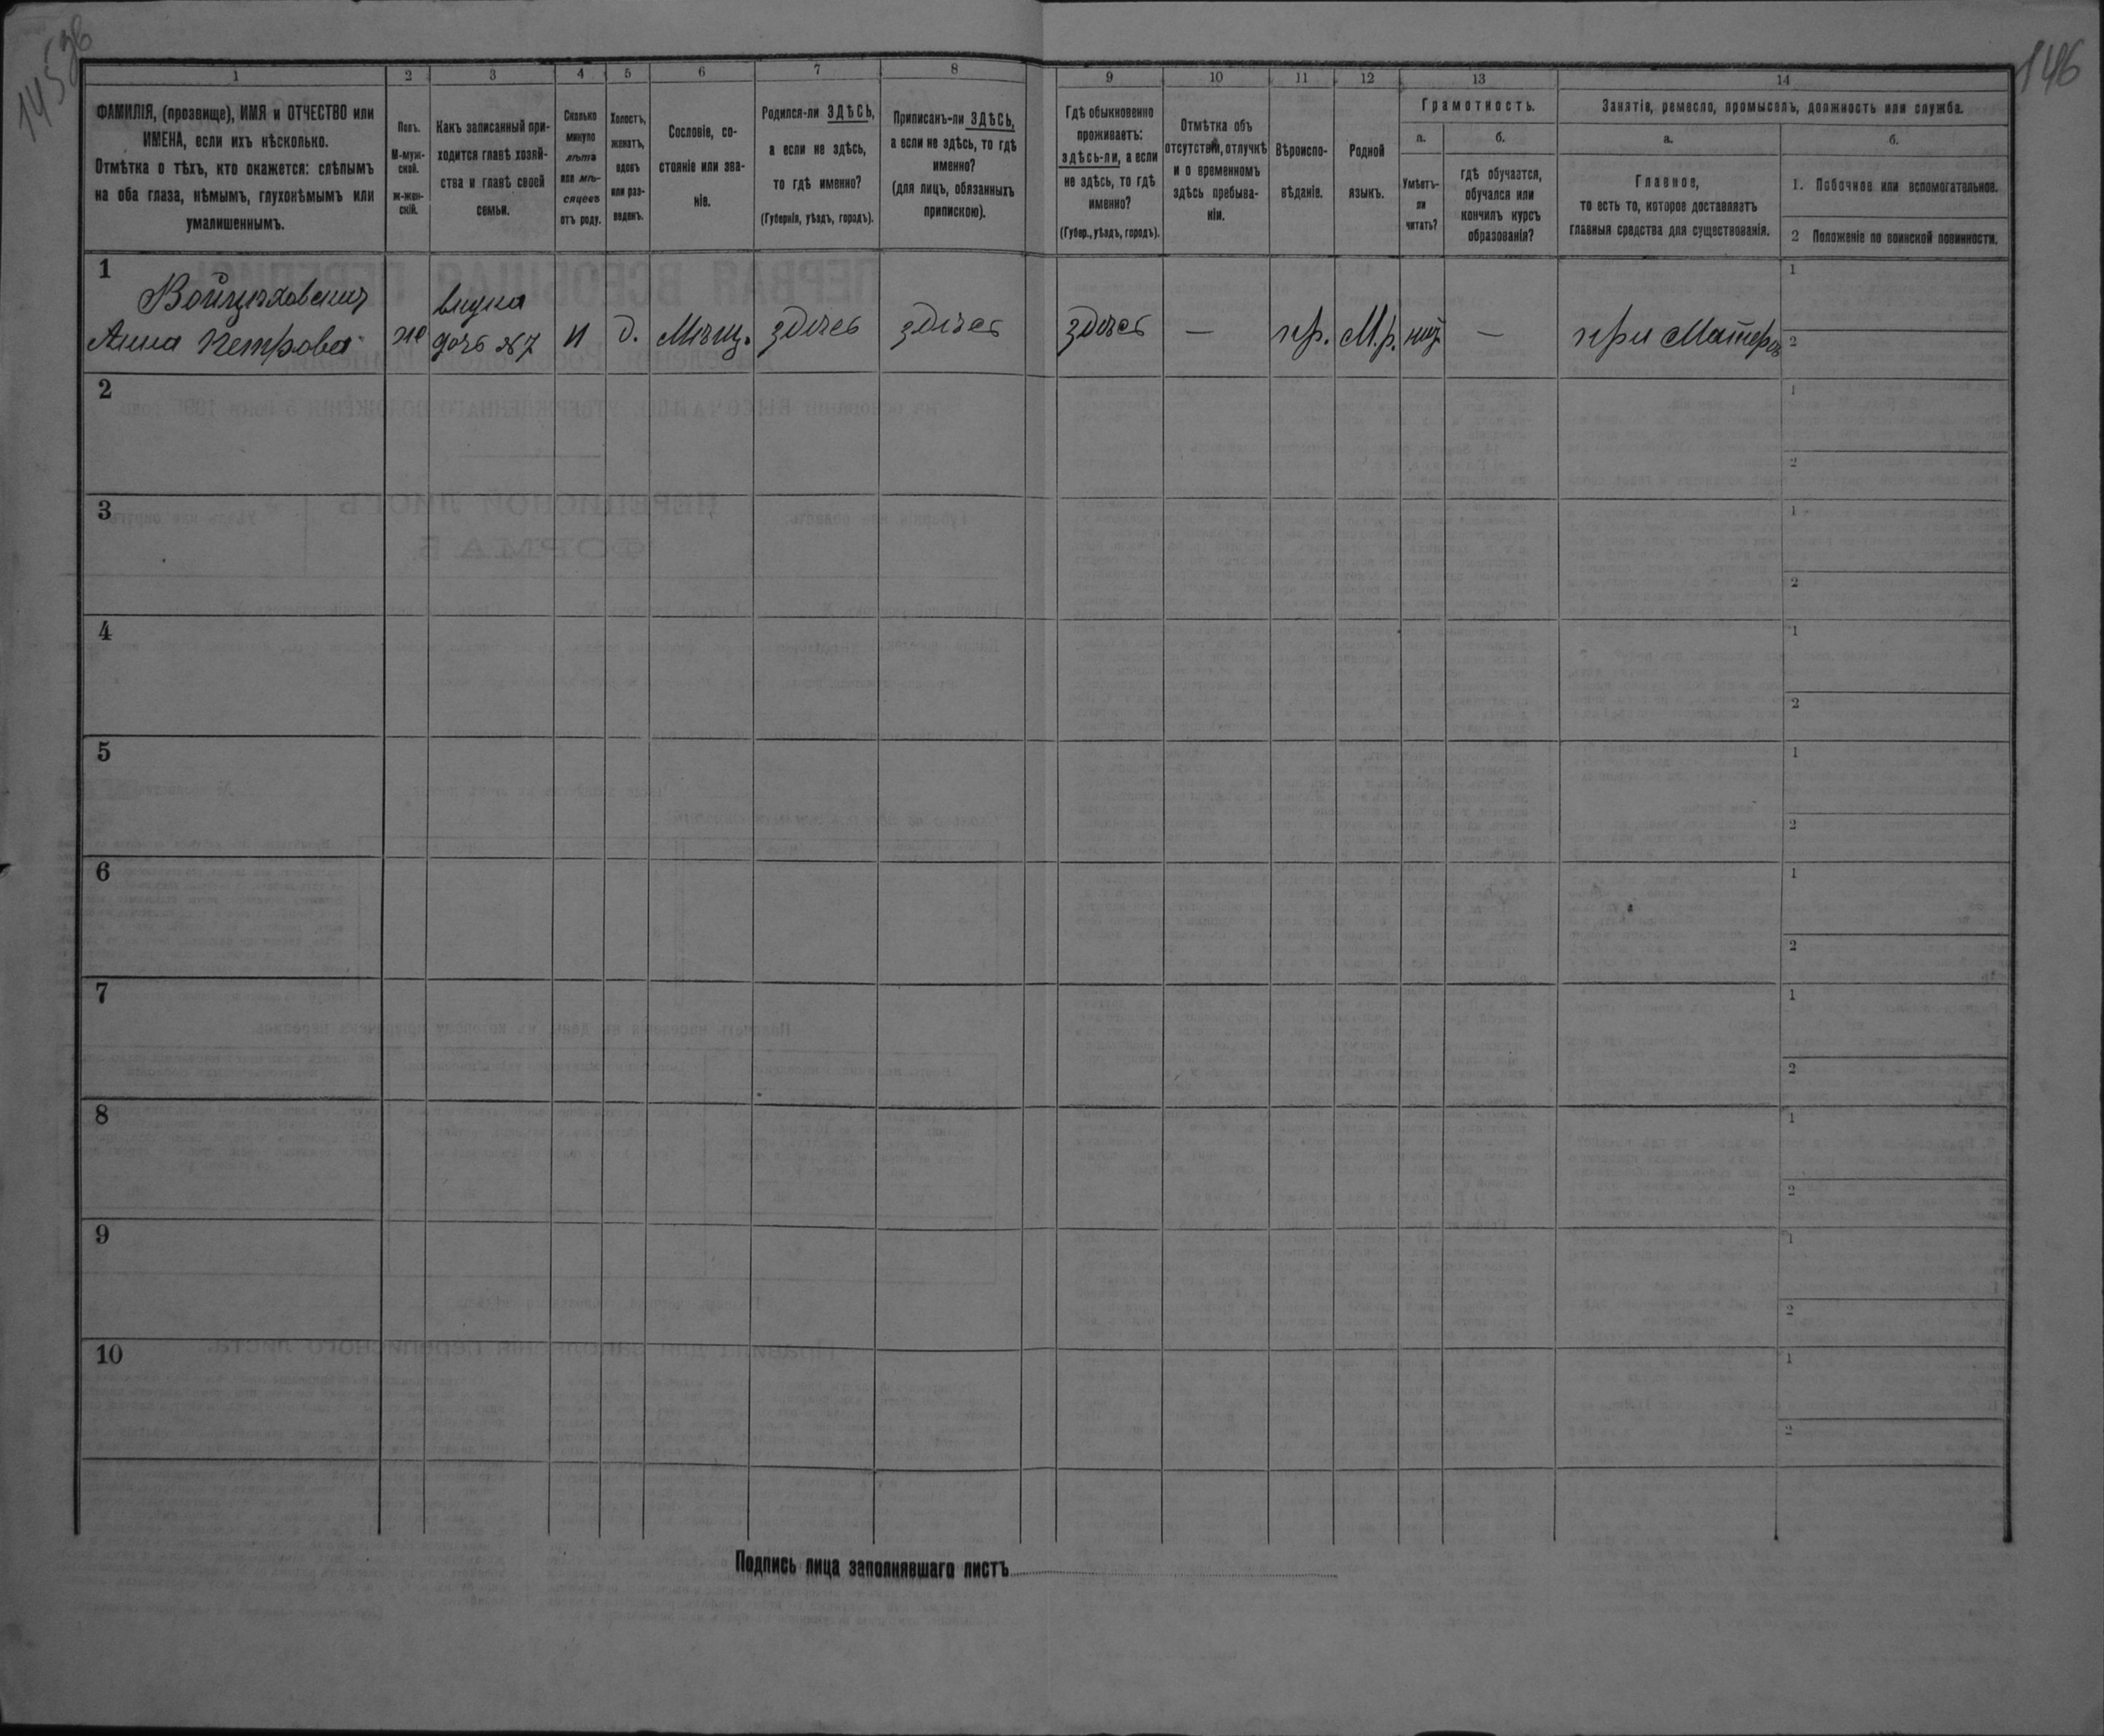 146
1 2 3 4 5 6 7 8 9 10 11 12 13 14
ФАМИЛІЯ, (прозвище), ИМЯ и ОТЧЕСТВО или
ИМЕНА, если ихъ нѣсколько.
Отмѣтка о тѣхъ, кто окажется: слѣпымъ
на оба глаза, нѣмымъ, глухонѣмымъ или
умалишеннымъ.
Полъ.
М-муж-
ской.
ж-жен-
скій.
Какъ записанный при-
ходится главѣ хозяй-
ства и главѣ своей
семьи.
Сколько
минуло
лѣтъ
или мѣ-
сяцевъ
отъ роду.
Холостъ,
женатъ,
вдовъ
или раз-
веденъ.
Сословіе, со-
стояніе или зва-
ніе.
Родился-ли ЗДѢСЬ,
а если не здѣсь,
то гдѣ именно?
(Губернія, уѣздъ, городъ).
Приписанъ-ли ЗДѢСЬ,
а если не здѣсь, то гдѣ
именно?
(для лицъ, обязанныхъ
припискою).
Гдѣ обыкновенно
проживаетъ:
здѣсь-ли, а если
не здѣсь, то гдѣ
именно?
(Губер., уѣздъ, городъ).
Отмѣтка объ
отсутствіи, отлучкѣ
и о временномъ
здѣсь пребыва-
ніи.
Вѣроиспо-
вѣданіе.
Родной
языкъ.
Грамотность.
а.
Умѣетъ-
ли
читать?
б.
гдѣ обучается,
обучался или
кончилъ курсъ
образованія?
Занятіе, ремесло, промыселъ, должность или служба.
а.
Главное,
то есть то, которое доставляетъ
главныя средства для существованія.
б.
1. Побочное или вспомогательное.
2 Положеніе по воинской повинности.
1
Войцеховскиз
Анна Петрова
внука
дочь №7
д.
Мѣщ.
здѣсь
здѣсь
здѣсь
—
пр.
М.р.
—
при Матери
1
2
2
1
2
3
1
2
4
1
2
5
1
2
6
1
2
7
1
2
8
1
2
9
1
2
10
1
2
Подпись лица заполнявшаго листъ